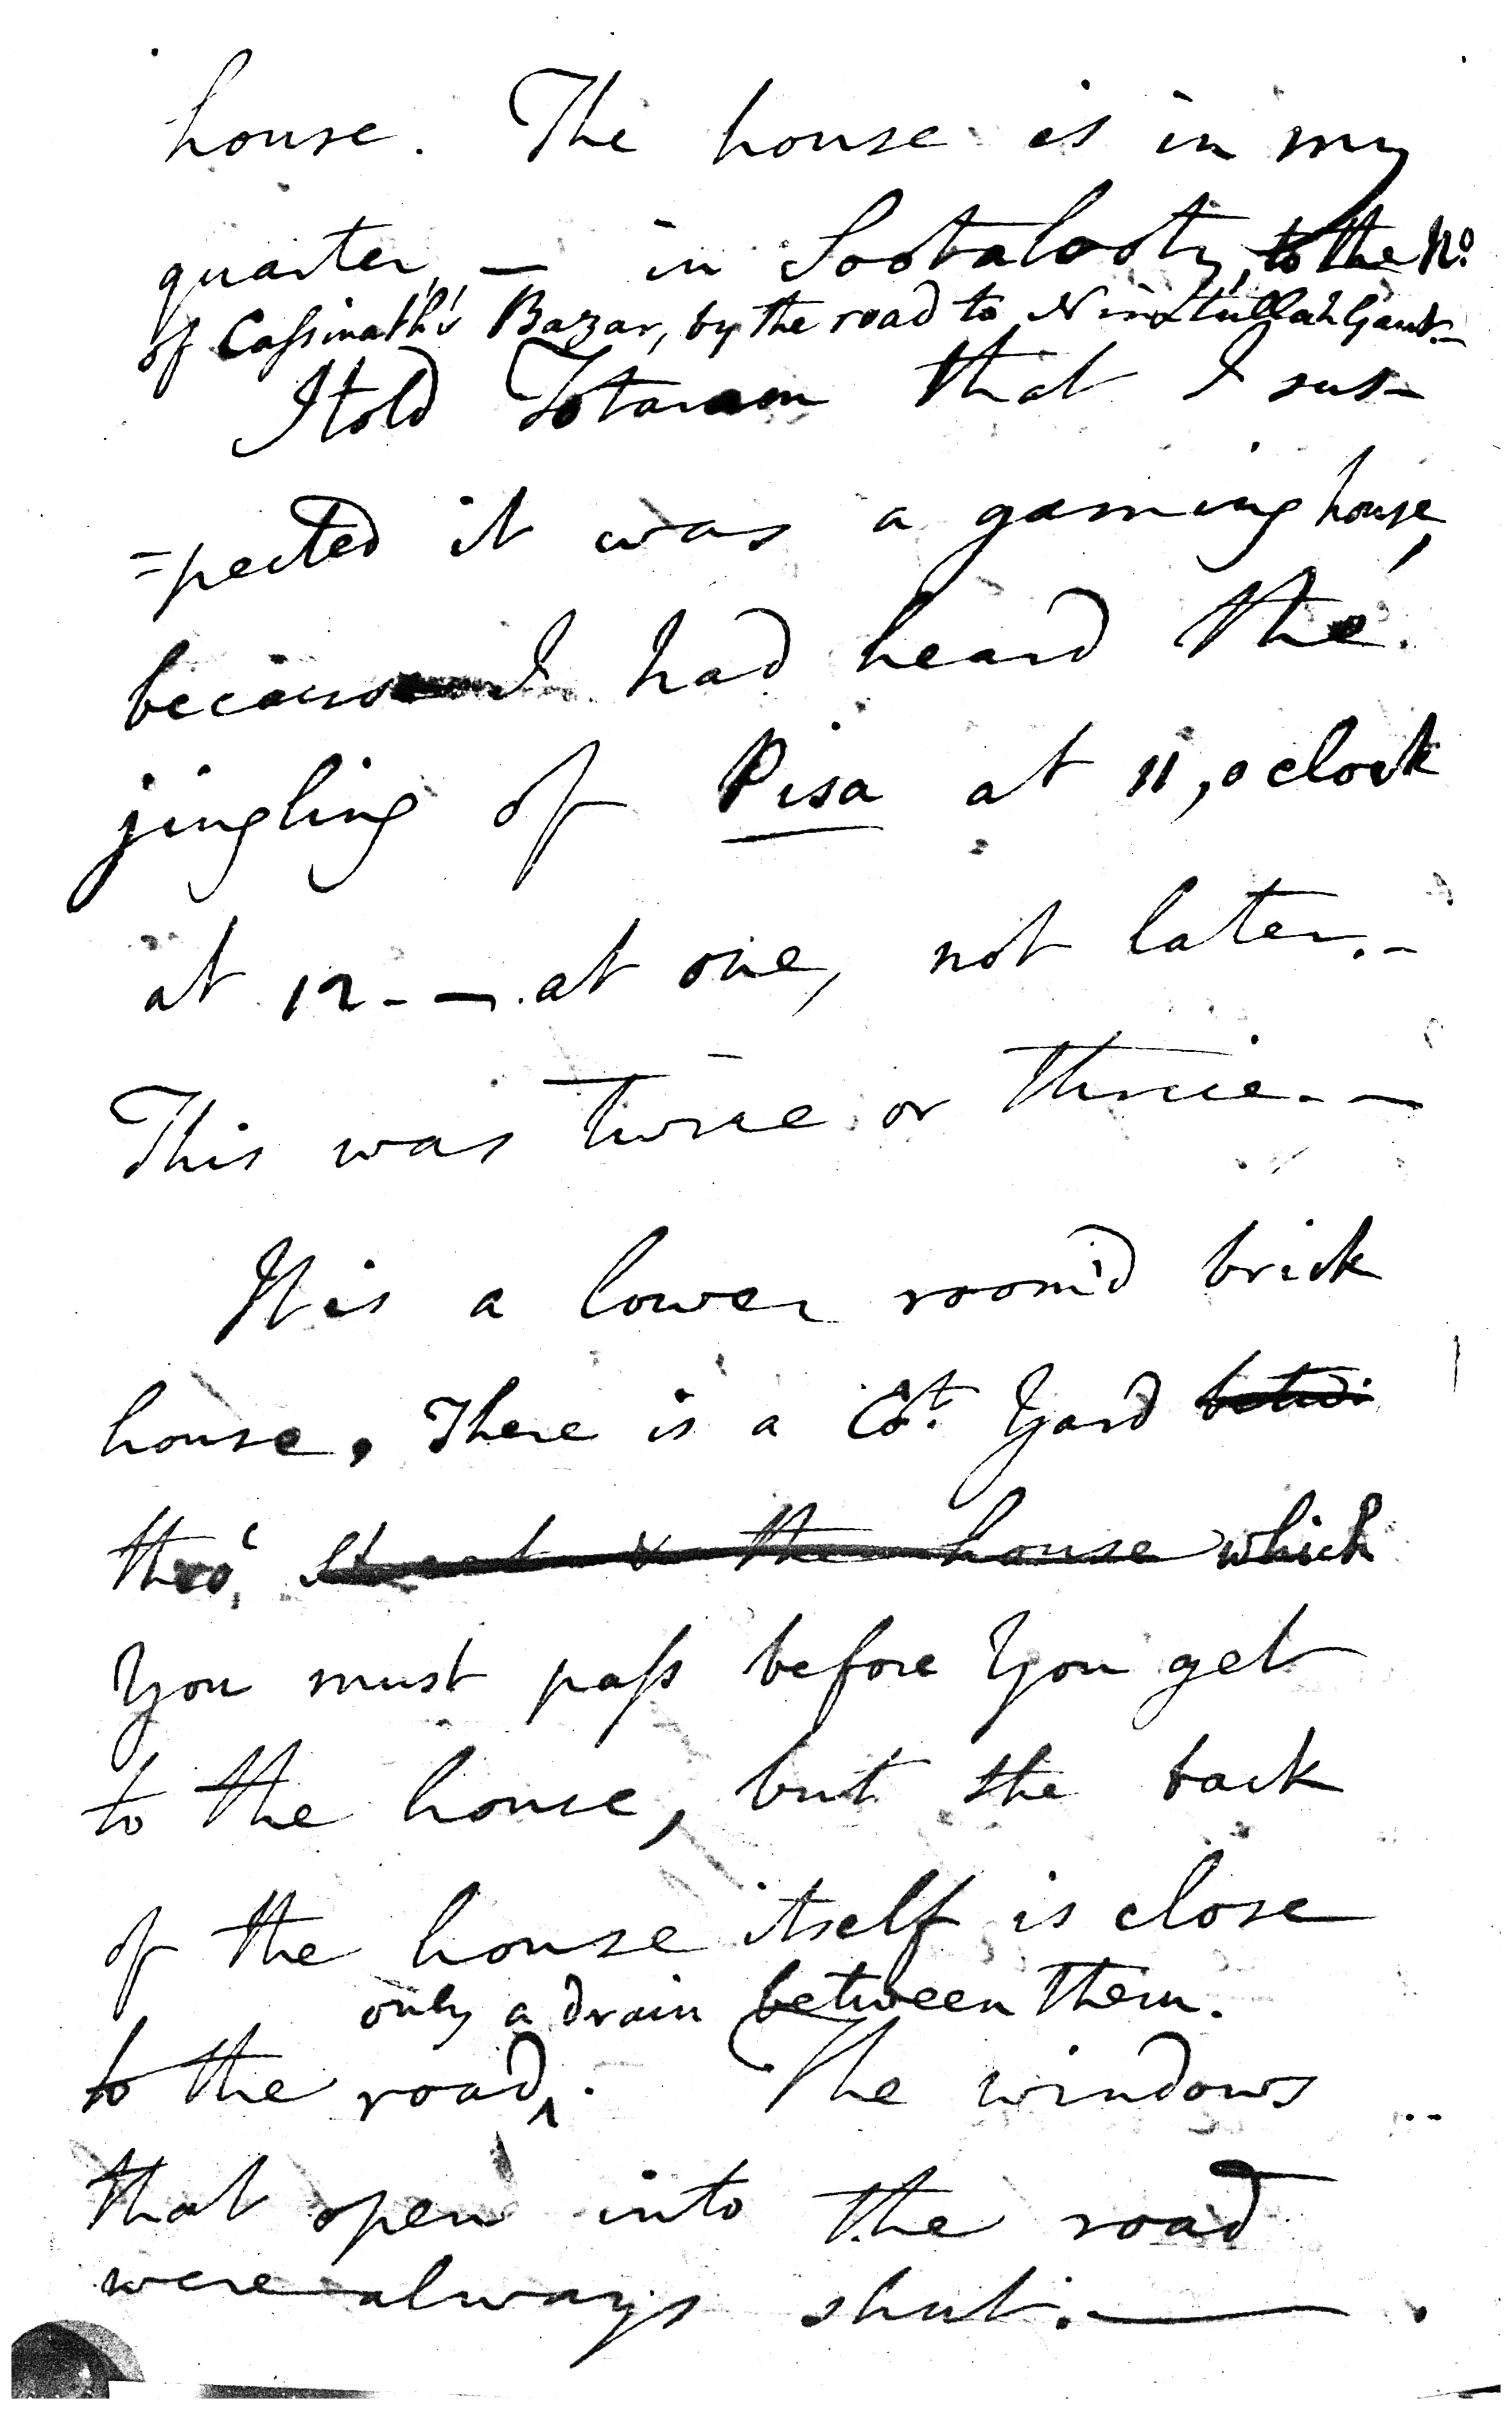 house. The house is in my
quarter, — in Sootalooty, to the No.
of Cassinath's Bazar, by the road to Nimtullah Gaut.—
I told Totaram that I sus-
=pected it was a gaming house,
because I had heard the
jingling of Pisa at 11, o clock
at 12 - — at one, not later. -
This was twice or thrice. - —
It is a lower room'd brick
house. There is a Ct. Yard
thro' street & the house which
You must pass before You get
to the house, but the back
of the house itself is close
only a drain between them.
to the road ^. The windows
that open into the road
were always shut. —